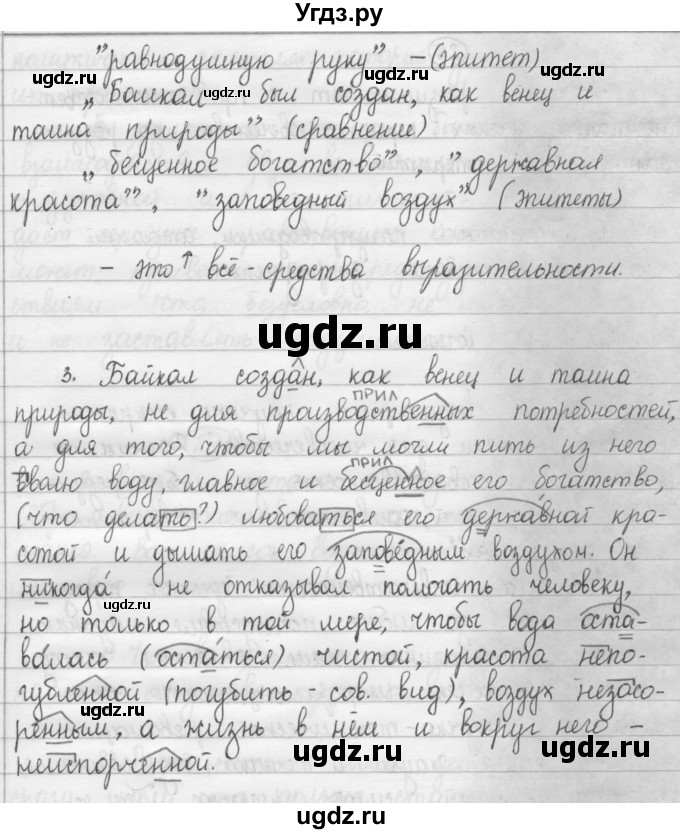 Угдз.ру
"равнодушную руку" - (эпитет)
"Байкал был создан, как венец и
тайна природы" (сравнение)
"бесценное богатство", "державная
красота", "заповедный воздух" (эпитеты)
- это ↑ всё - средства выразительности.
ugdz.ru
3. Байкал создан, как венец и тайна
природы, не для производственных потребностей,
прил
а для того, чтобы мы могли пить из него
прил
вволю воду, главное и бесценное его богатство,
(что делать?) любоваться его державной кра-
сотой и дышать его заповедным воздухом. Он
никогда не отказывал помогать человеку,
но только в той мере, чтобы вода оста-
валась (остаться) чистой, красота непо-
губленной (погубить - сов. вид), воздух незасо-
ренным, а жизнь в нём и вокруг него -
неиспорченной.
ugdz.ru